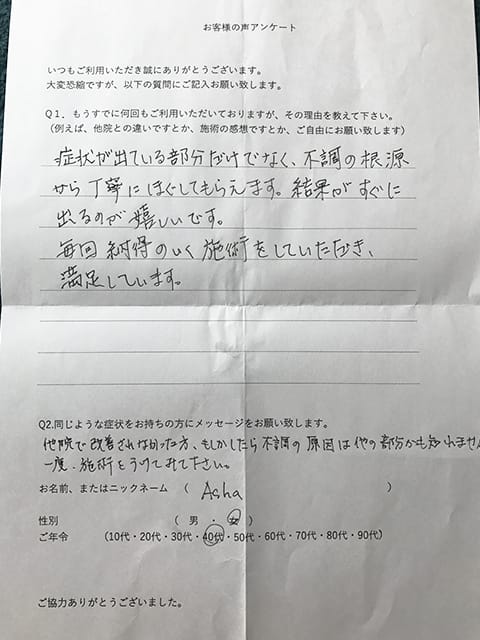 お客様の声アンケート
いつもご利用いただき誠にありがとうございます。
大変恐縮ですが、以下の質問にご記入お願い致します。
Q1．もうすでに何回もご利用いただいておりますが、その理由を教えて下さい。
（例えば、他院との違いですとか、施術の感想ですとか、ご自由にお願い致します）
症状が出ている部分だけでなく、不調の根源
から丁寧にほぐしてもらえます。結果がすぐに
出るのが嬉しいです。
毎回納得のいく施術をしていただき、
満足しています。
Q2.同じような症状をお持ちの方にメッセージをお願い致します。
他院で改善されなかった方、もしかしたら不調の原因は他の部分かも知れません
一度、施術をうけてみて下さい。
お名前、またはニックネーム （ Asha ）
性別 （ 男 ・ 女 ）
ご年令 （10代・20代・30代・40代・50代・60代・70代・80代・90代）
ご協力ありがとうございました。